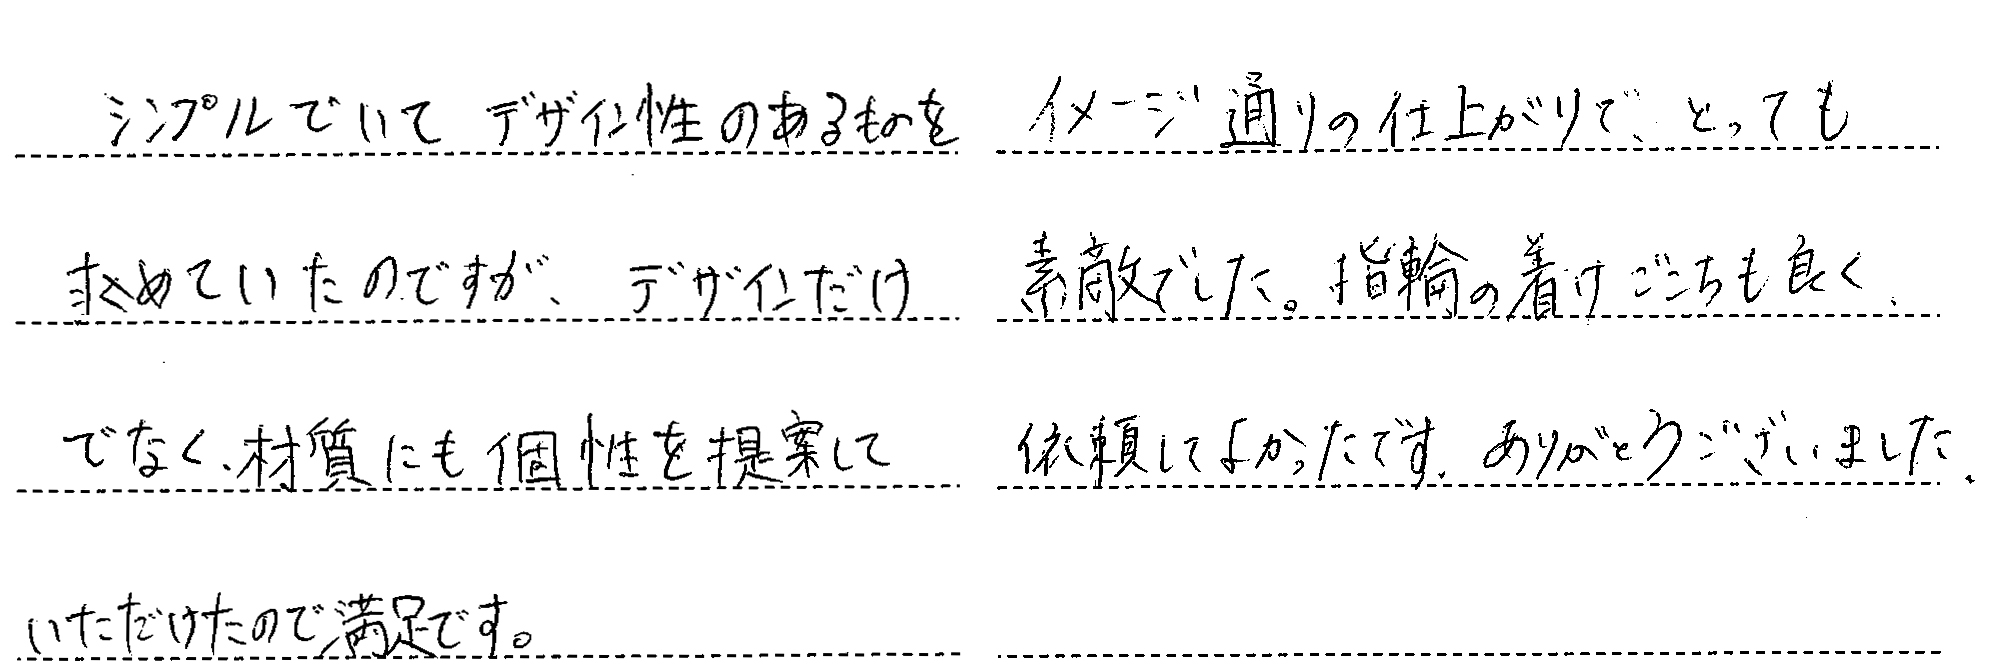 シンプルでいて デザイン性のあるものを
求めていたのですが、デザインだけ
でなく、材質にも個性を提案して
いただけたので満足です。
イメージ通りの仕上がりで、とっても
素敵でした。指輪の着けごこちも良く、
依頼してよかったです。ありがとうございました。